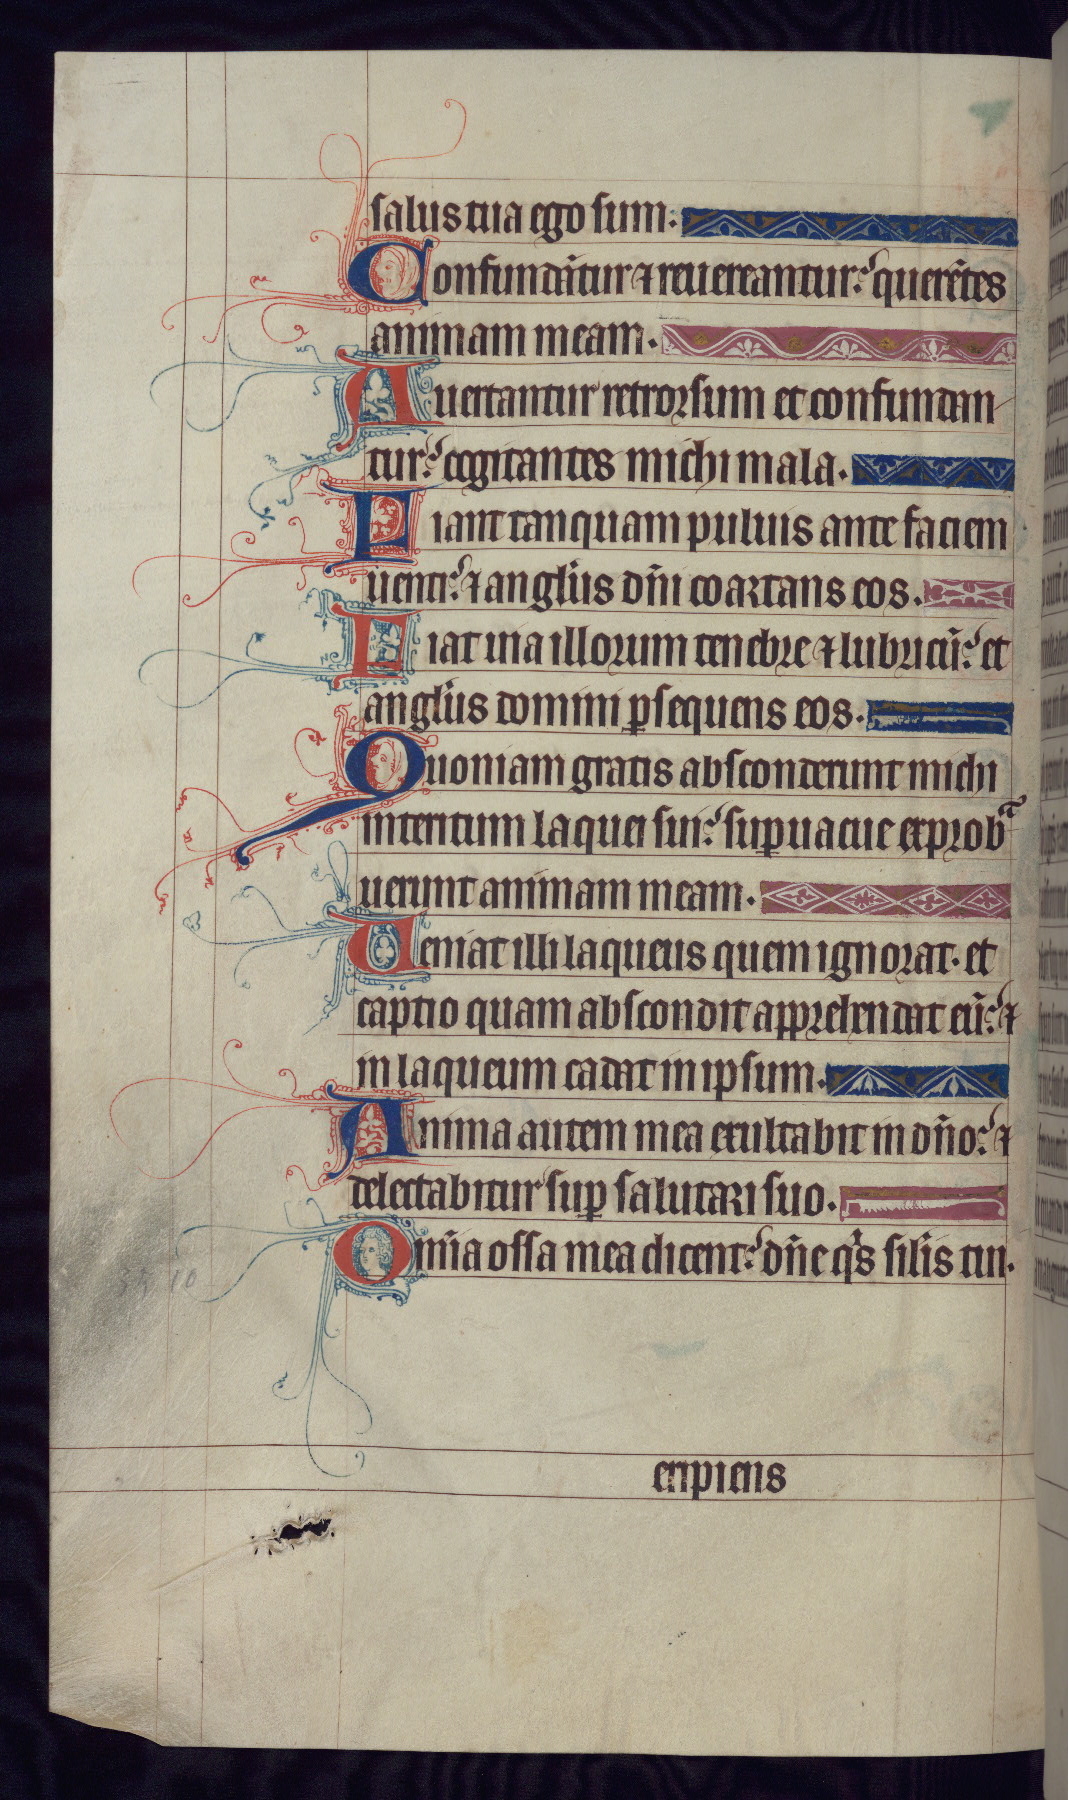 salus tua ego sum:
Confundãtur ⁊ reuereantur: querẽtes
animam meam.
Auertantur retrorsum et confundan
tur: cogitantes michi mala.
Fiant tanquam puluis ante faciem
uenti: ⁊ anglus dñi coartans eos.
Fiat uia illorum tenebre ⁊ lubricũ: et
anglus domini ꝑsequens eos.
Quoniam gratis absconderunt michi
interitum laquei sui: suꝑuacue exprob
uerunt animam meam.
Ueniat illi laqueus quem ignorat. et
captio quam abscondit apprehendat eũ: ⁊
in laqueum cadat in ipsum.
Anima autem mea exultabit in dño: ⁊
delectabitur suꝑ salutari suo.
Omĩa ossa mea dicent: dñe qis silis tui.
eripiens